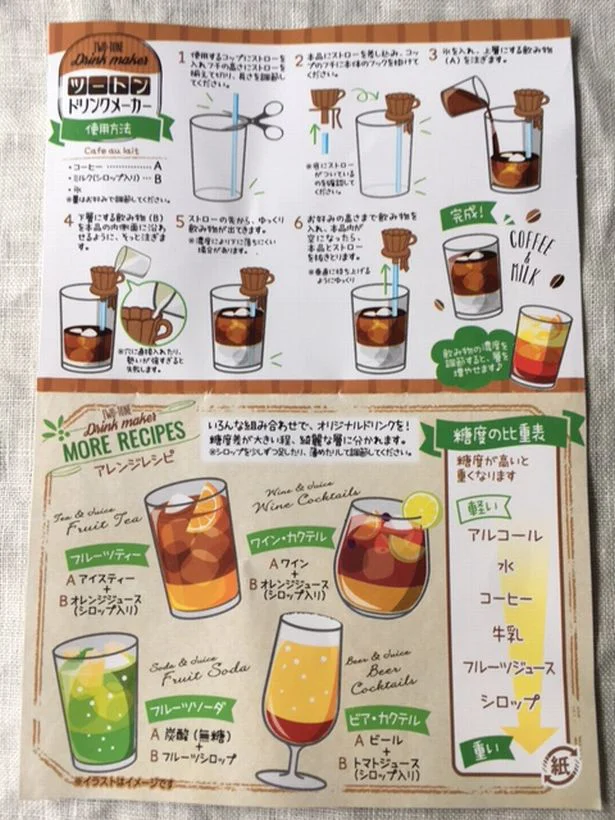 TWO-TONE
Drink maker
ツートン
ドリンクメーカー
使用方法
Cafe au lait
・コーヒー ・・・・・・・・・・・・ A
・ミルク(シロップ入り) ・・・ B
・氷
※量はお好みで調節してください。
1 使用するコップにストローを
入れフチの高さにストローを
揃えて切り、長さを調節し
てください。
2 本品にストローを差し込み、コッ
プのフチに本体のフックを掛けて
ください。
※底にストロー
がついている
のを確認して
ください。
3 氷を入れ、上層にする飲み物
(A) を注ぎます。
4 下層にする飲み物 (B)
を本品の内側面に沿わ
せるように、そっと注ぎま
す。
※穴に直接入れたり、
勢いが強すぎると
失敗します。
5 ストローの先から、ゆっくり
飲み物が出てきます。
※濃度により下に落ちにくい
場合があります。
6 お好みの高さまで飲み物を
入れ、本品内が
空になったら、
本品とストロー
を抜きとります。
※垂直に持ち上げる
ようにゆっくり
完成!
COFFEE
&
MILK
飲み物の濃度を
調節すると、層を
増やせます♪
TWO-TONE
Drink maker
MORE RECIPES
アレンジレシピ
いろんな組み合わせで、オリジナルドリンクを!
糖度差が大きい程、綺麗な層に分かれます。
※シロップを少しずつ足したり、薄めたりして調節してください。
Tea & Juice
Fruit Tea
フルーツティー
A アイスティー
+
B オレンジジュース
(シロップ入り)
Wine & Juice
Wine Cocktails
ワイン・カクテル
A ワイン
+
B オレンジジュース
(シロップ入り)
Soda & Juice
Fruit Soda
フルーツソーダ
A 炭酸 (無糖)
+
B フルーツシロップ
Beer & Juice
Beer
Cocktails
ビア・カクテル
A ビール
+
B トマトジュース
(シロップ入り)
※イラストはイメージです
糖度の比重表
糖度が高いと
重くなります
軽い
アルコール
水
コーヒー
牛乳
フルーツジュース
シロップ
重い
紙